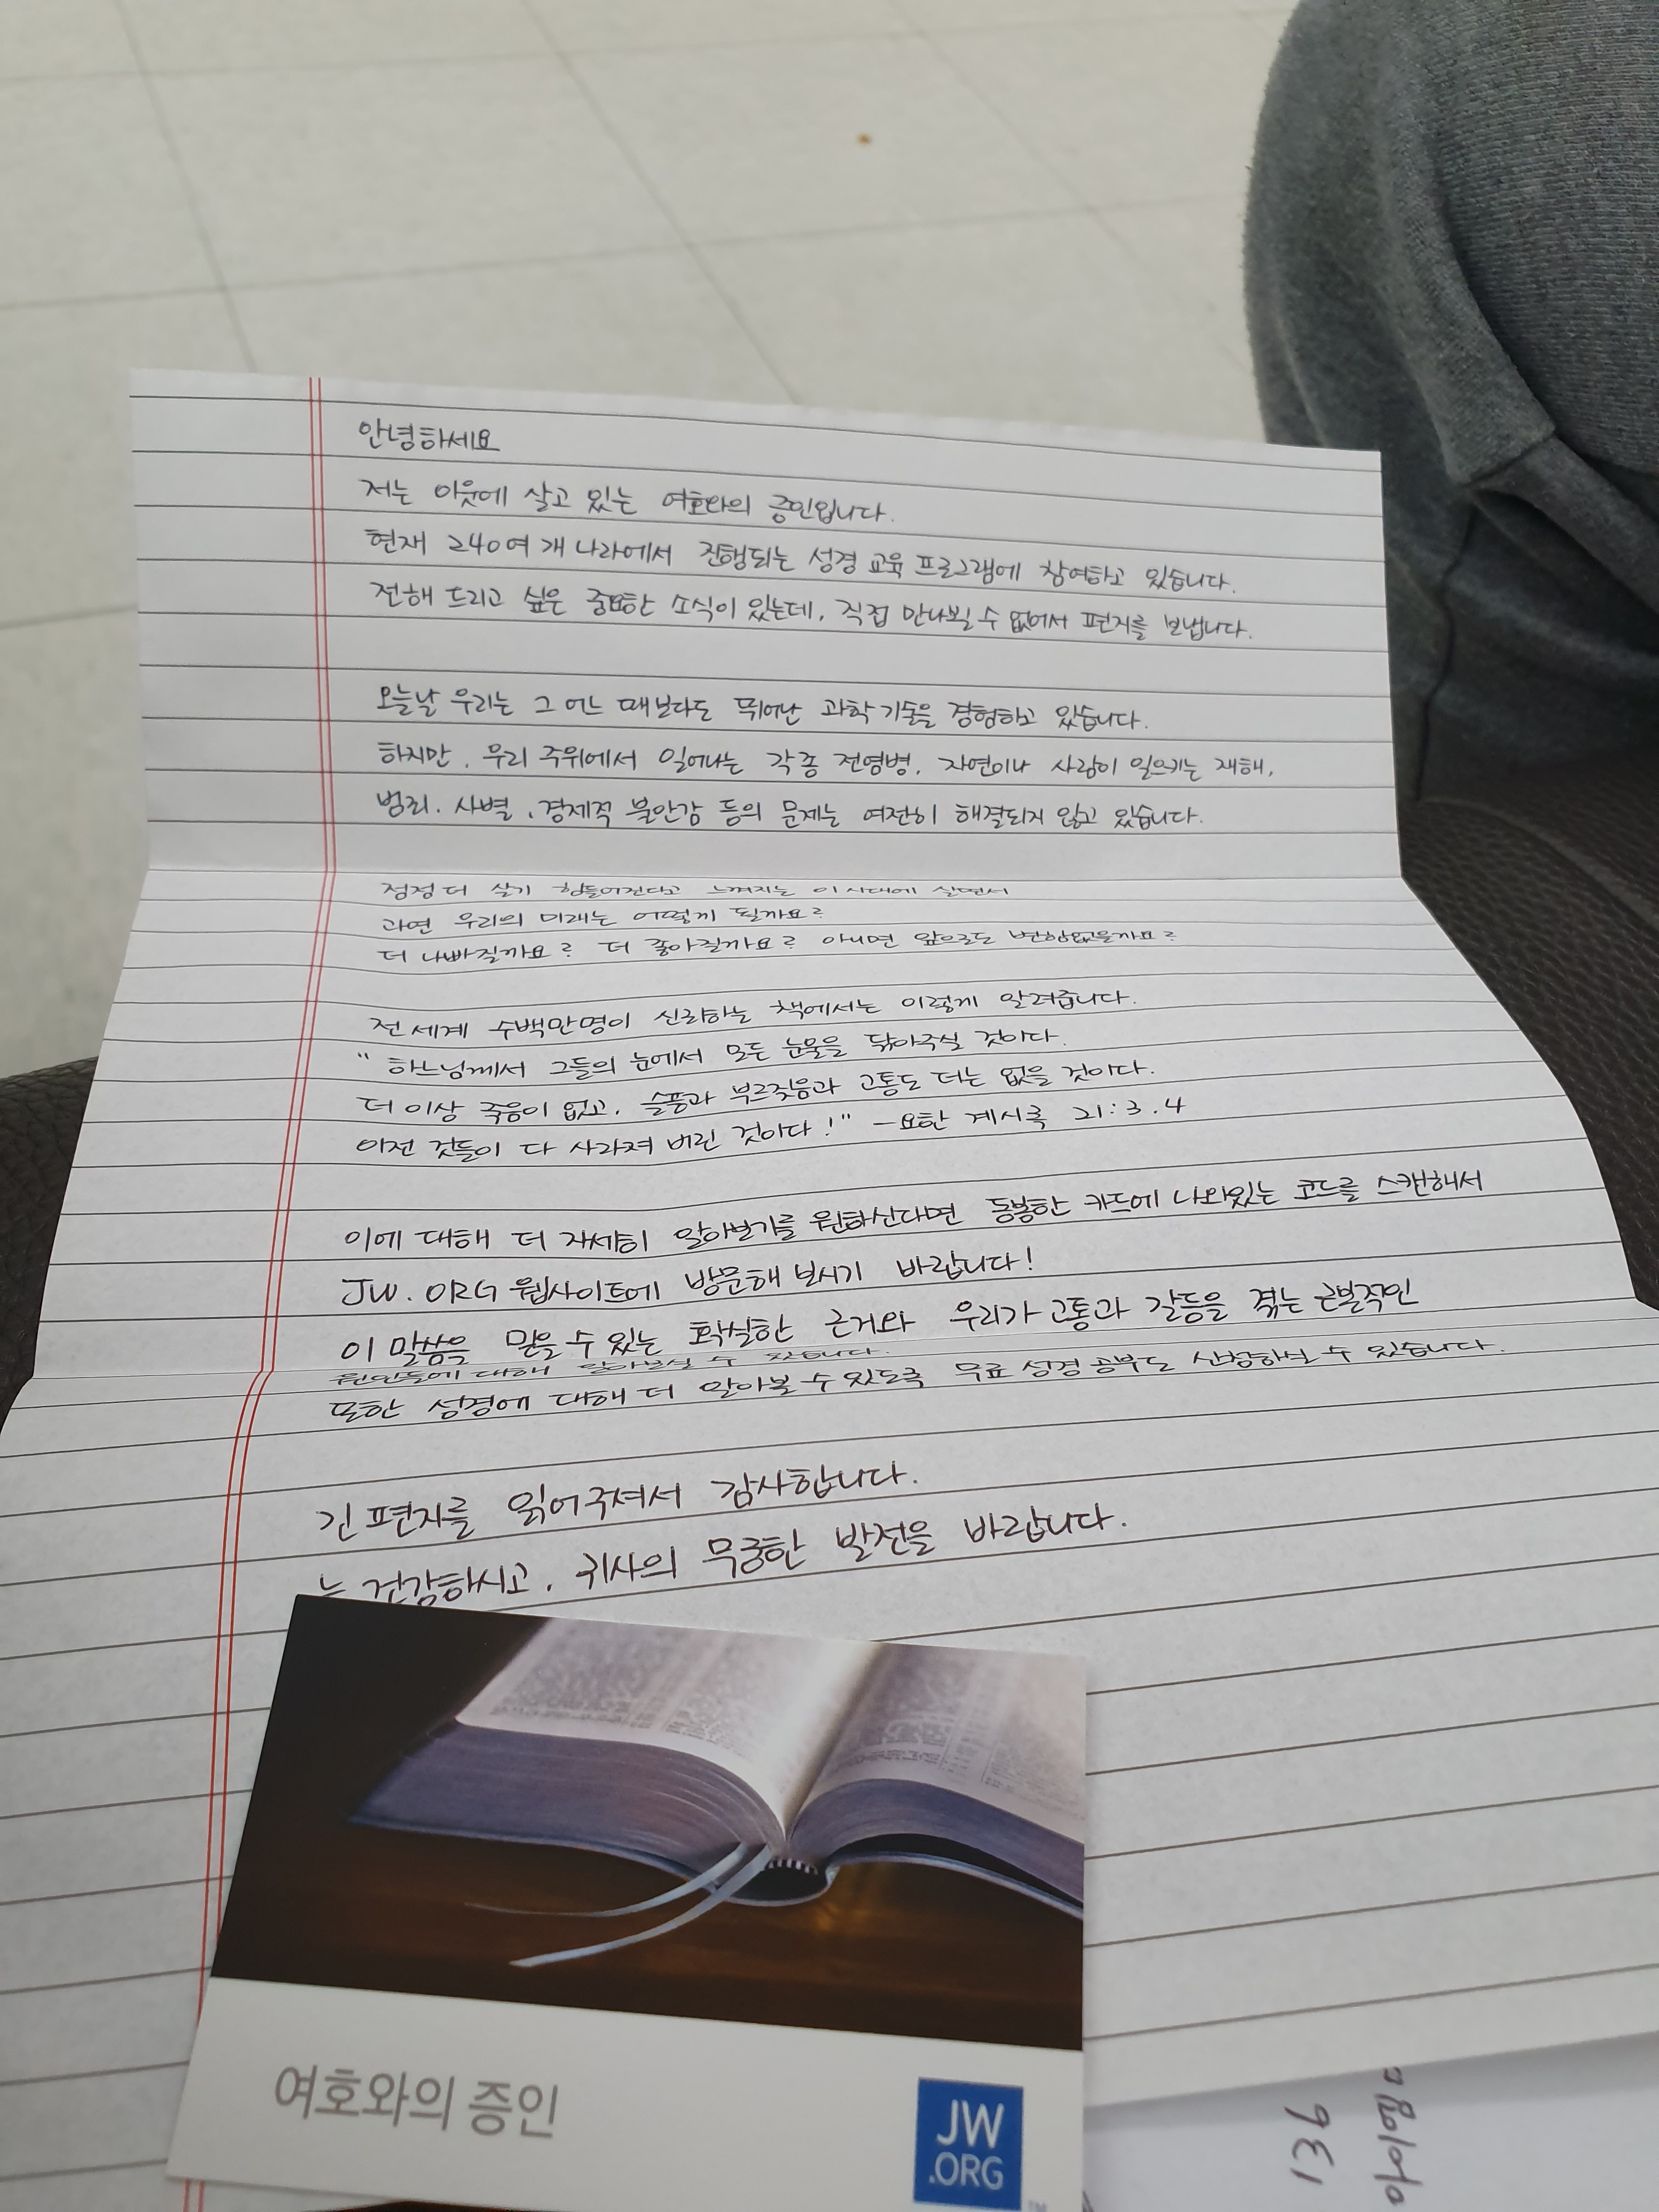 안녕하세요
저는 이웃에 살고 있는 여호와의 증인입니다.
현재 240여 개 나라에서 진행되는 성경 교육 프로그램에 참여하고 있습니다.
전해 드리고 싶은 중요한 소식이 있는데, 직접 만나뵐 수 없어서 편지를 보냅니다.
오늘날 우리는 그 어느 때보다도 뛰어난 과학 기술을 경험하고 있습니다.
하지만, 우리 주위에서 일어나는 각종 전염병, 자연이나 사람이 일으키는 재해,
범죄, 사별, 경제적 불안감 등의 문제는 여전히 해결되지 않고 있습니다.
점점 더 살기 힘들어진다고 느껴지는 이 시대에 살면서
과연 우리의 미래는 어떻게 될까요?
더 나빠질까요? 더 좋아질까요? 아니면 앞으로도 변함없을까요?
전 세계 수백만명이 신뢰하는 책에서는 이렇게 알려줍니다.
"하느님께서 그들의 눈에서 모든 눈물을 닦아주실 것이다.
더 이상 죽음이 없고, 슬픔과 부르짖음과 고통도 더는 없을 것이다.
이전 것들이 다 사라져 버린 것이다!" -요한 계시록 21:3.4
이에 대해 더 자세히 알아보기를 원하신다면 동봉한 카드에 나와있는 코드를 스캔해서
JW.ORG 웹사이트에 방문해 보시기 바랍니다!
이 말씀을 믿을 수 있는 확실한 근거와 우리가 고통과 갈등을 겪는 근본적인
원인들에 대해 알아보실 수 있습니다.
또한 성경에 대해 더 알아볼 수 있도록 무료 성경 공부도 신청하실 수 있습니다.
긴 편지를 읽어주셔서 감사합니다.
건강하시고, 귀사의 무궁한 발전을 바랍니다.
여호와의 증인
JW
.ORG
136